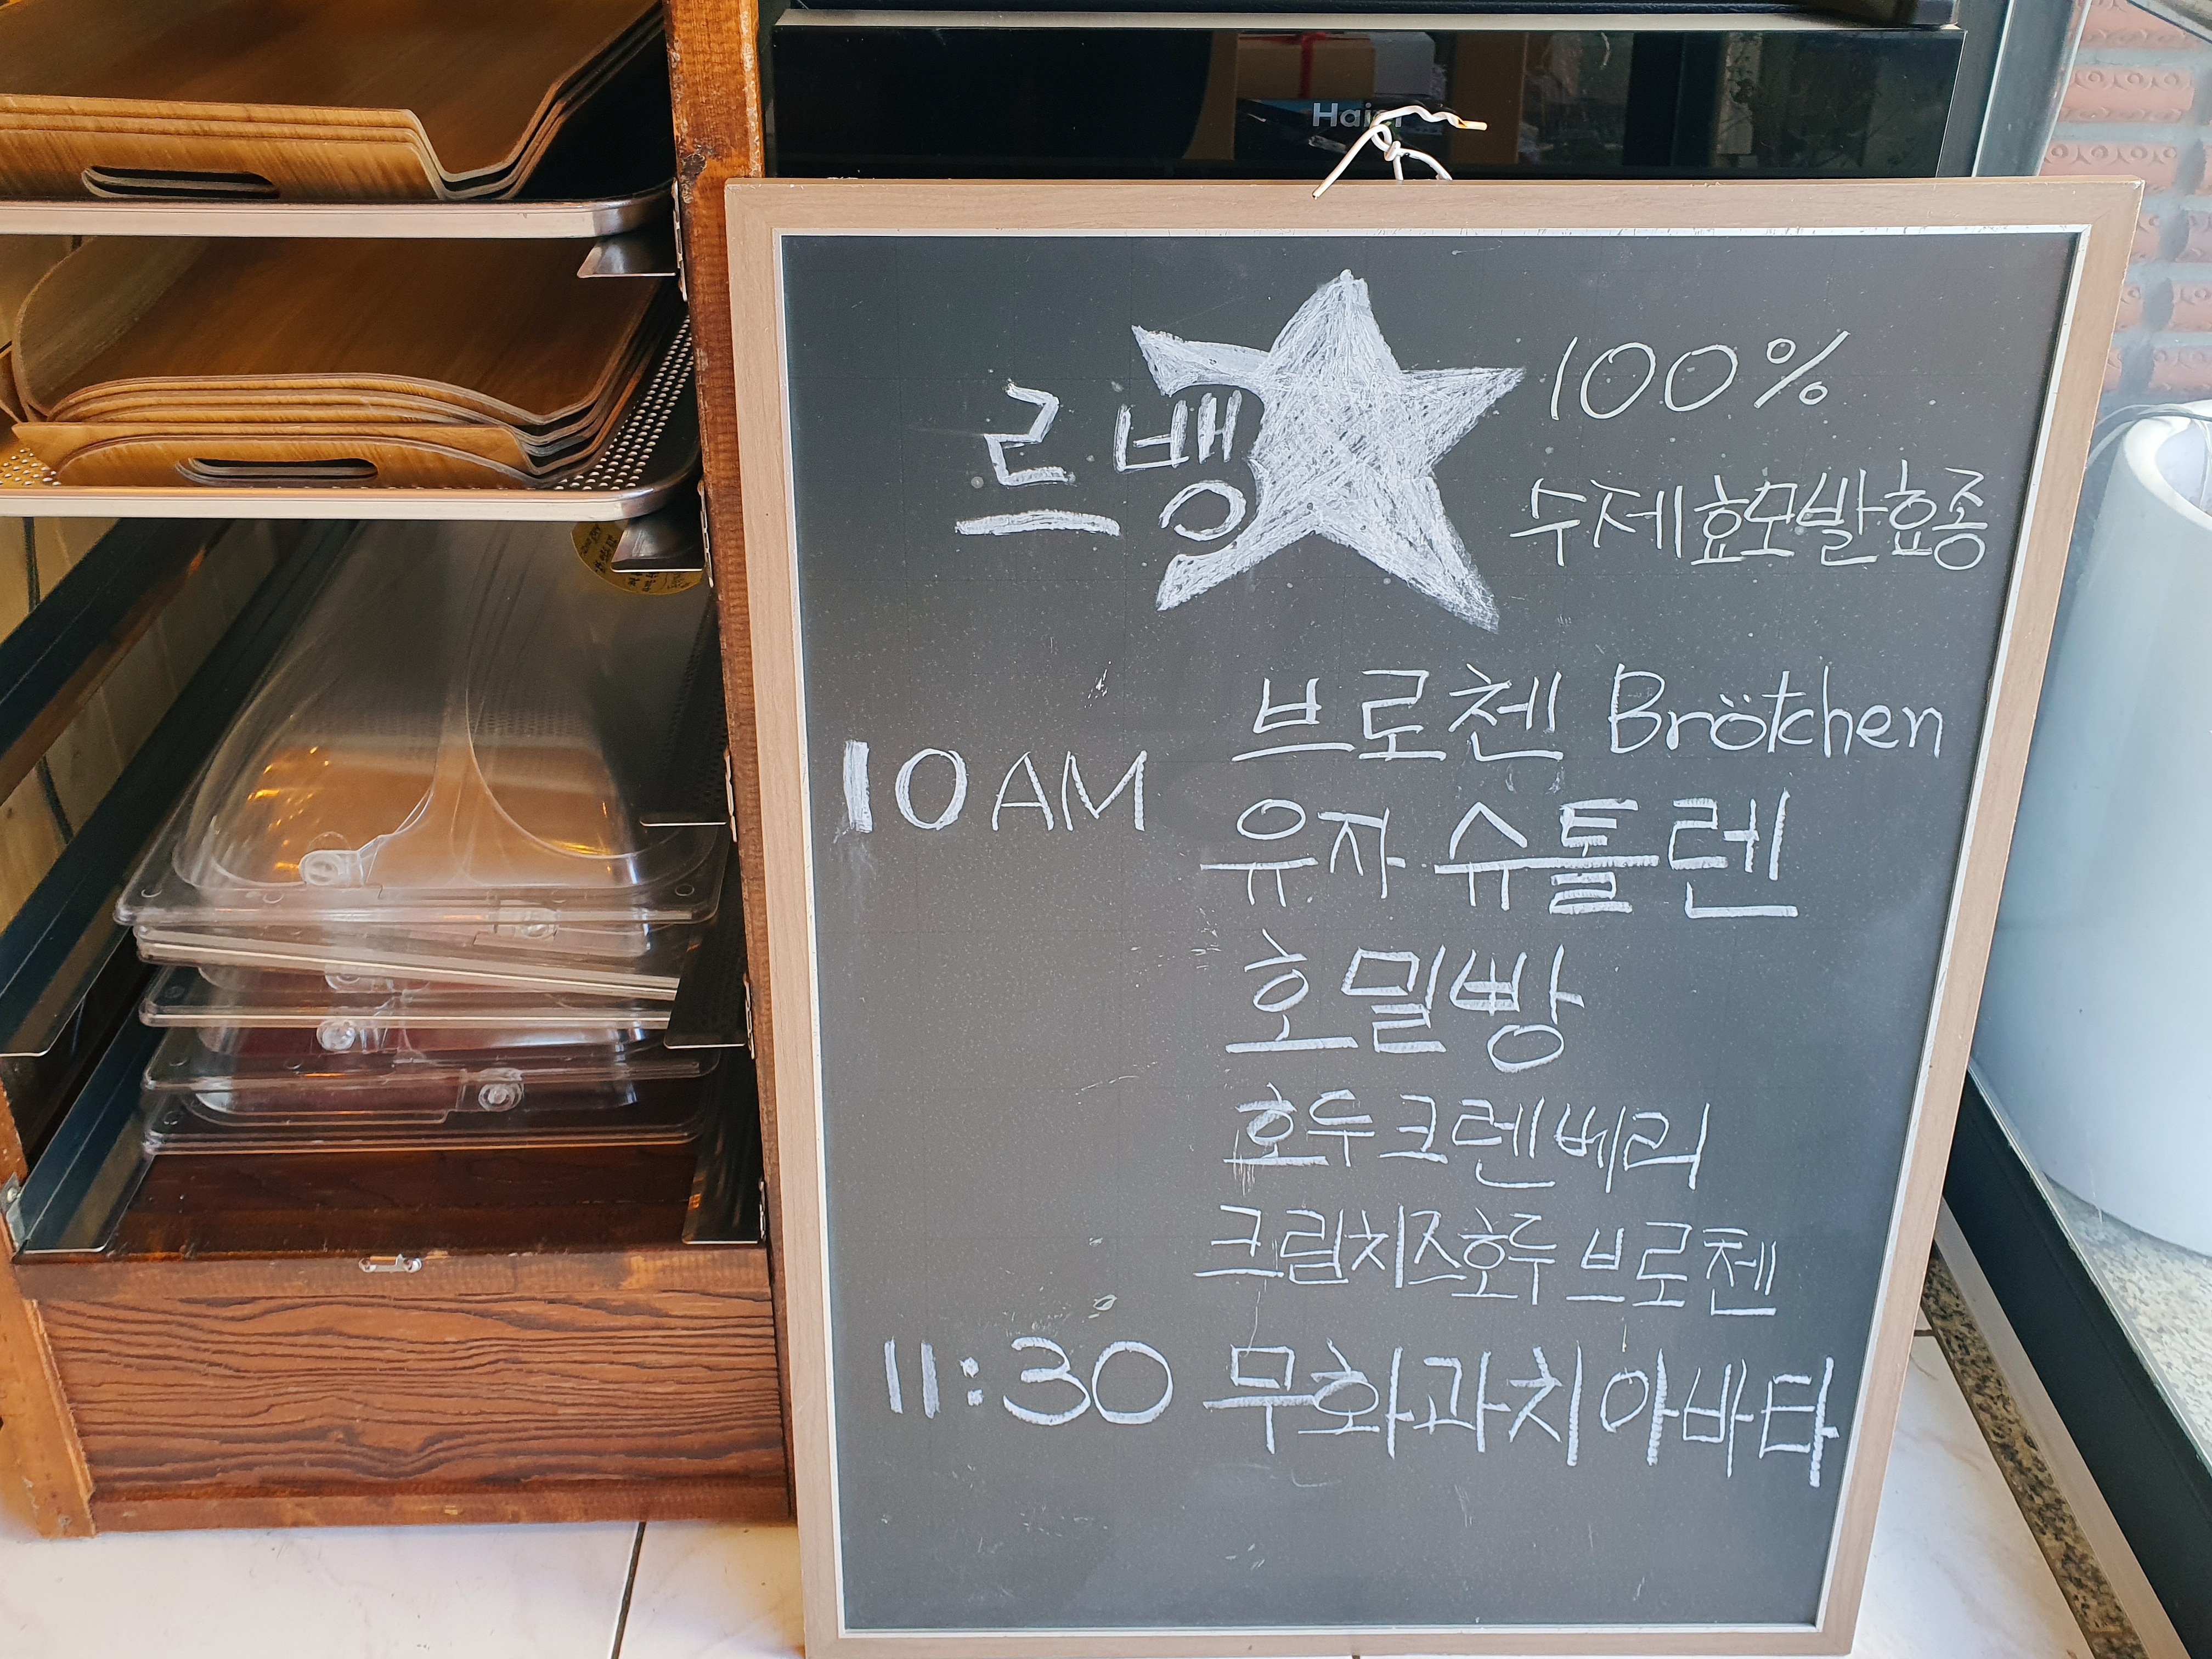 Haier
르뱅 100%
수제효모발효종
브로첸 Brötchen
10AM
유자 슈톨렌
호밀빵
호두크렌베리
크림치즈호두 브로첸
11:30 무화과치아바타